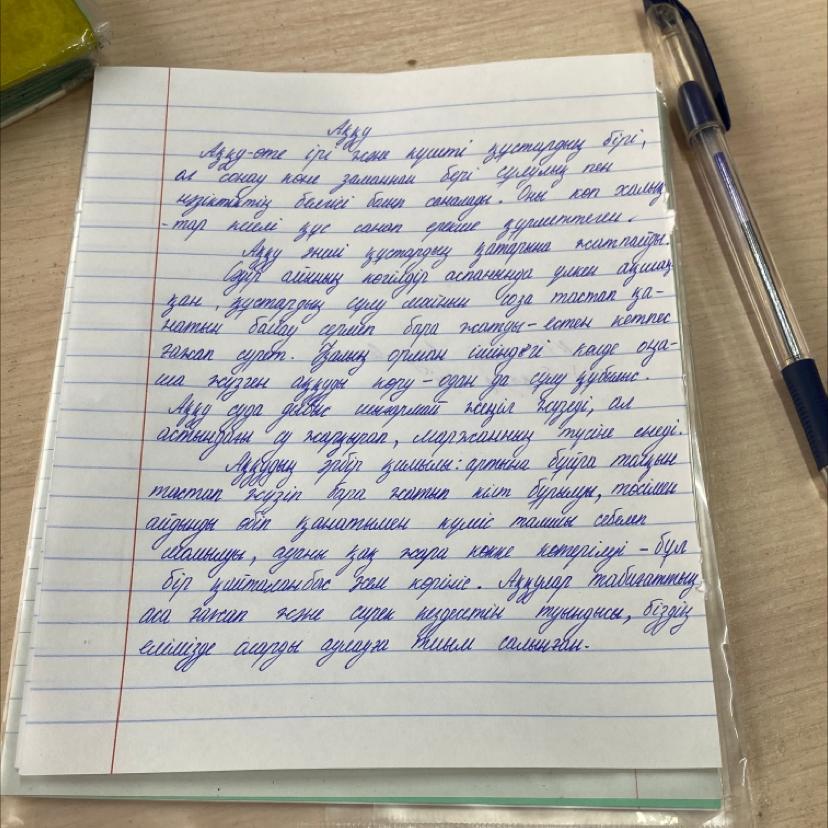 Аққу
Аққу-өте ірі және күшті құстардың бірі,
ол сонау көне заманнан бері сұлулық пен
нәзіктіктің белгісі болып саналады. Оны көп халық
-тар киелі құс санап ерекше құрметтеген.
Аққу әнші құстардың қатарына жатпайды.
Сәуір айының көгілдір аспанында үлкен ақшаң-
қан, құстардың сұлу мойнын соза тастап қа-
натын баяу сермеп бара жатуы-естен кетпес
ғажап сурет. Қалың орман ішіндегі көлде оңа-
ша жүзген аққуды көру - одан да сұлу құбылыс.
Аққу суда дыбыс шығармай жеңіл жүзеді, ал
астындағы су жарқырап, маржанның түсіне енеді.
Аққудың әрбір қимылы: артына бұйра толқын
тастап жүзіп бара жатып кілт бұрылуы, төсімен
айдынды өбіп қанатымен күміс тамшы себелеп
шомылуы, ауаны қақ жара көкке көтерілуі - бұл
бір қайталанбас әсем көрініс. Аққулар табиғаттың
аса ғажап және сирек кездесетін туындысы, біздің
елімізде оларды аулауға тиым салынған.